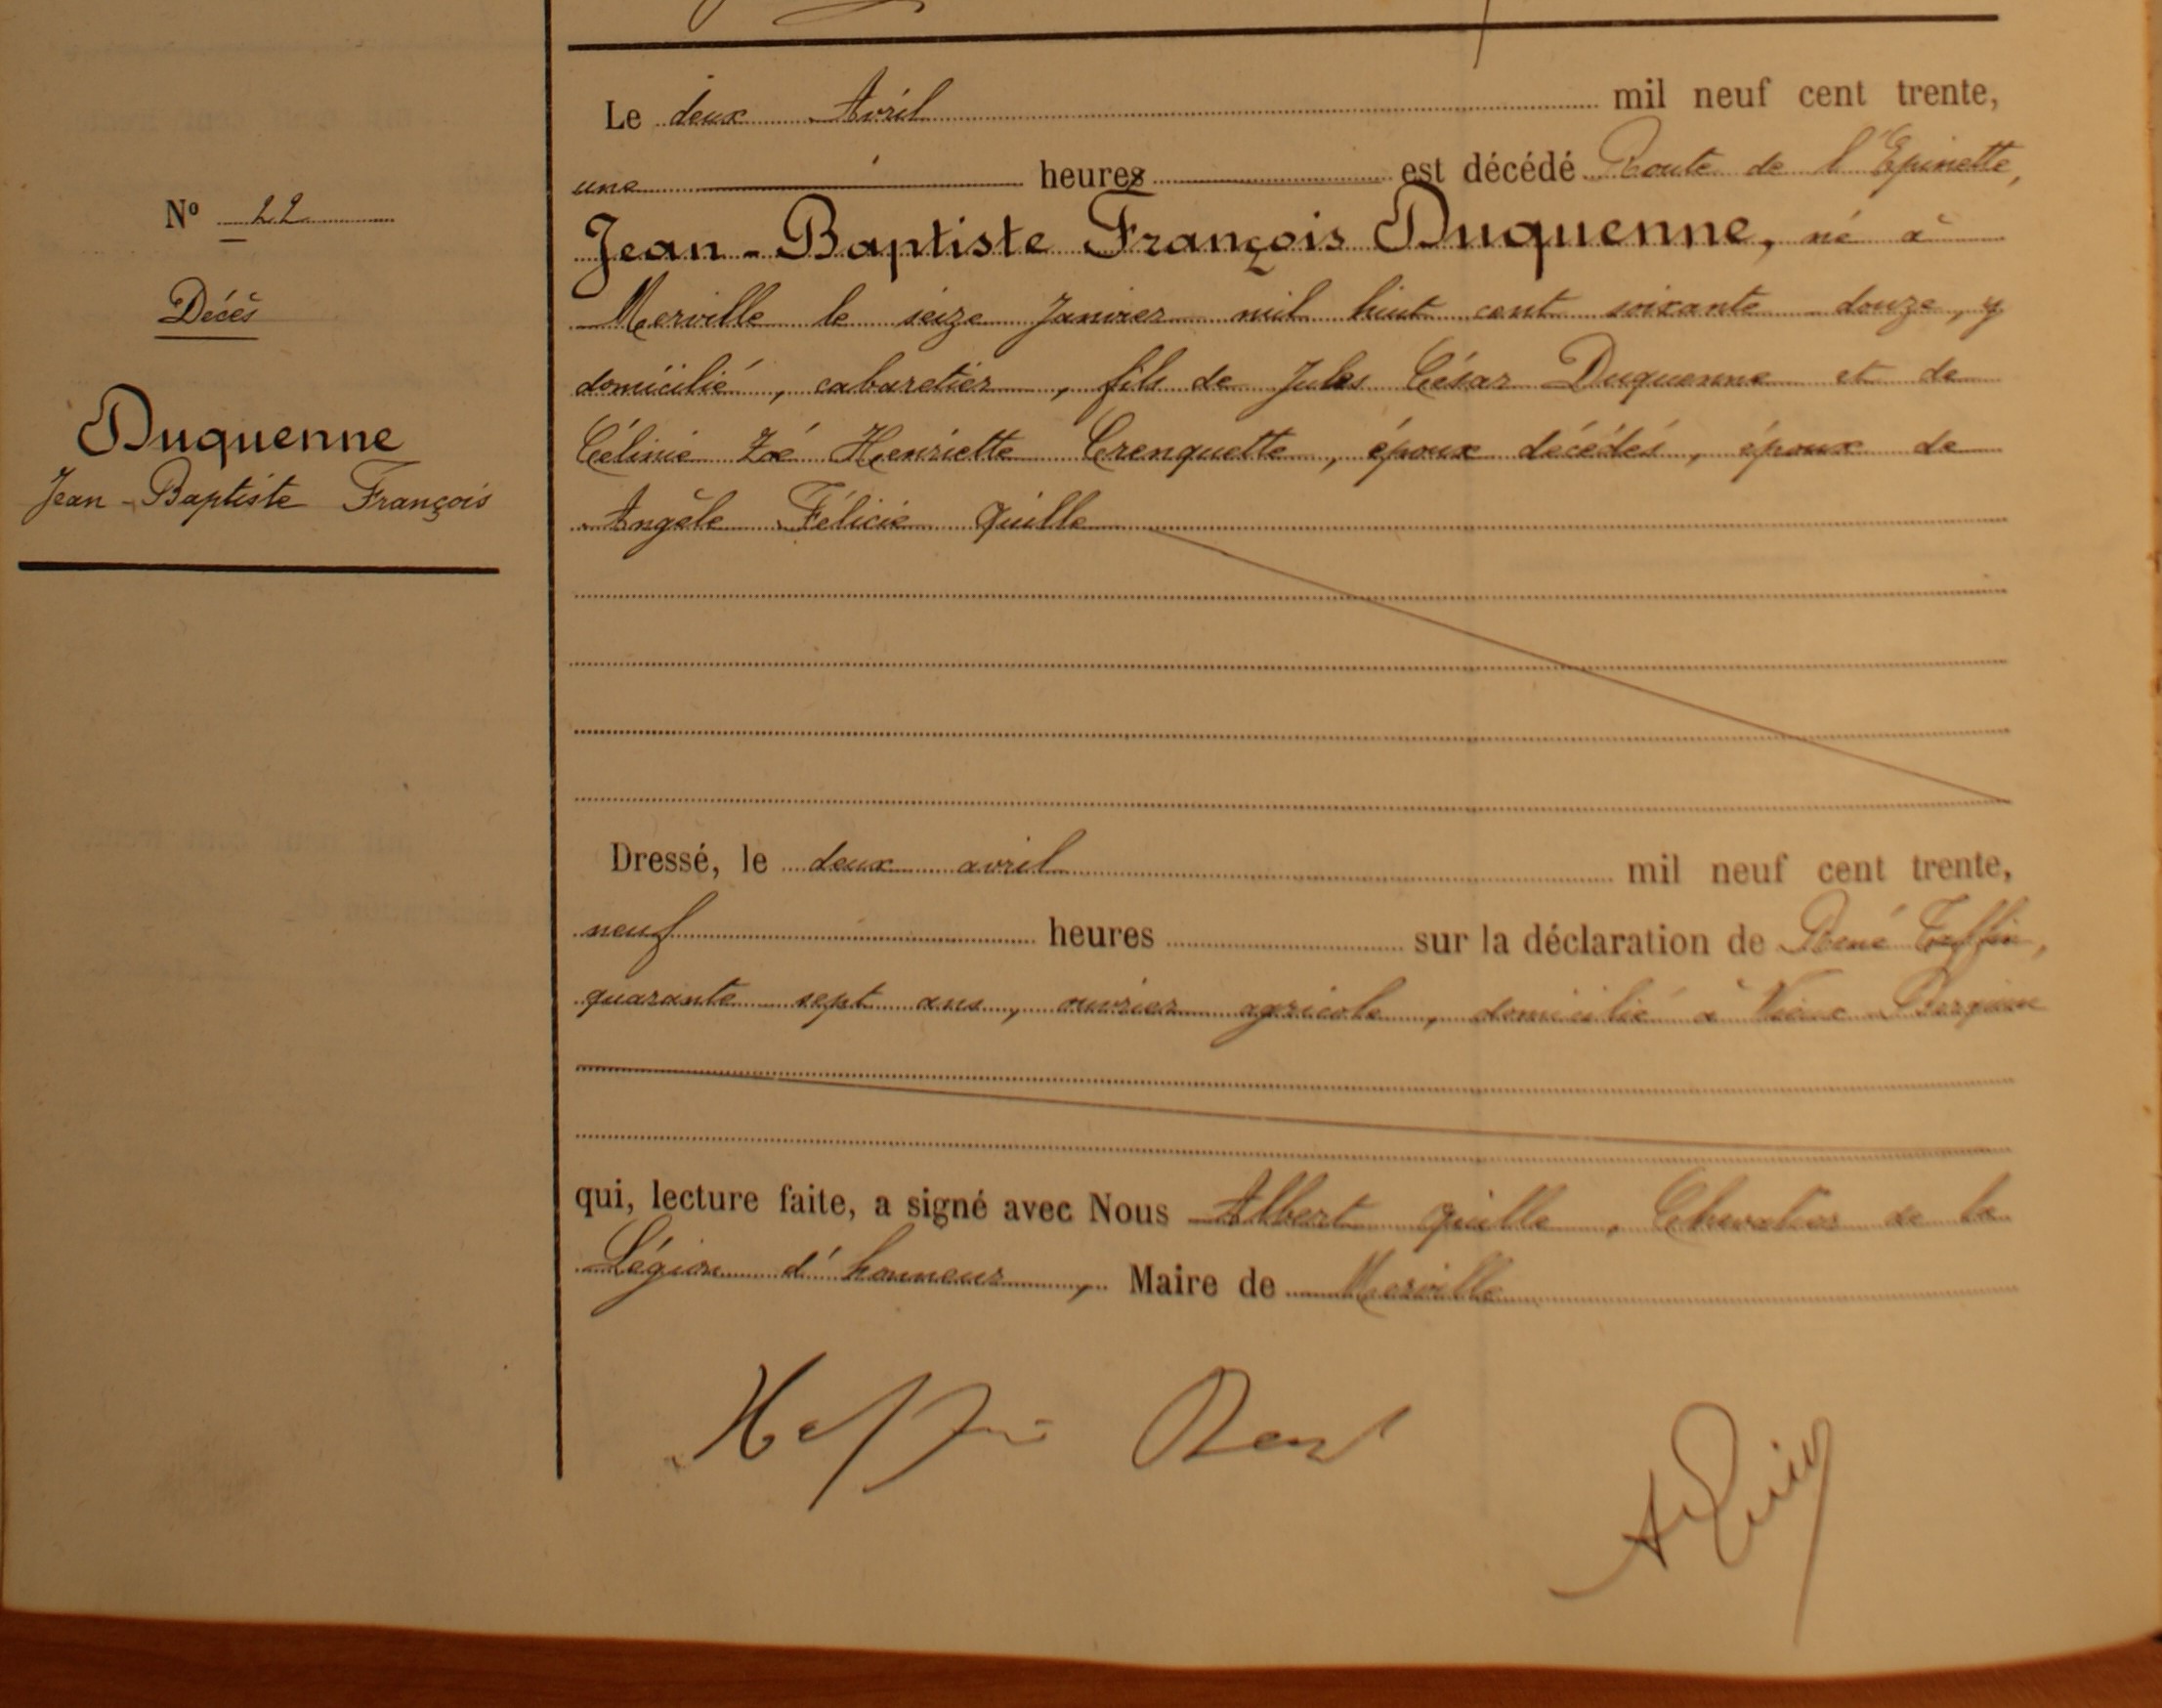 Nº 22
Décès
Duquenne
Jean-Baptiste François
Le deux Avril mil neuf cent trente,
une heures est décédé Route de l'Epinette,
Jean-Baptiste François Duquenne, né à
Merville le seize Janvier mil huit cent soixante douze, y
domicilié, cabaretier, fils de Jules César Duquenne et de
Célinie Zoé Henriette Crenquette, époux décédés, époux de
Angèle Félicie Quille
Dressé, le deux avril mil neuf cent trente,
neuf heures sur la déclaration de René
quarante sept ans, ouvrier agricole, domicilié à Vieux-Berquin
qui, lecture faite, a signé avec Nous Albert Quille, Chevalier de la
Légion d'honneur, Maire de Merville